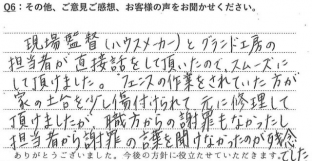 Q6：その他、ご意見ご感想、お客様の声をお聞かせください。
現場監督(ハウスメーカー)とグランド工房の
担当者が直接話をして頂いたので、スムーズに
して頂けました。フェンスの作業をされていた方が
家の土台を少し傷付けられて元に修理して
頂けましたが、職方からの謝罪もなかったし
担当者から謝罪の言葉を聞けなかったのが残念
でした
ありがとうございました。今後の方針に役立たせていただきます。